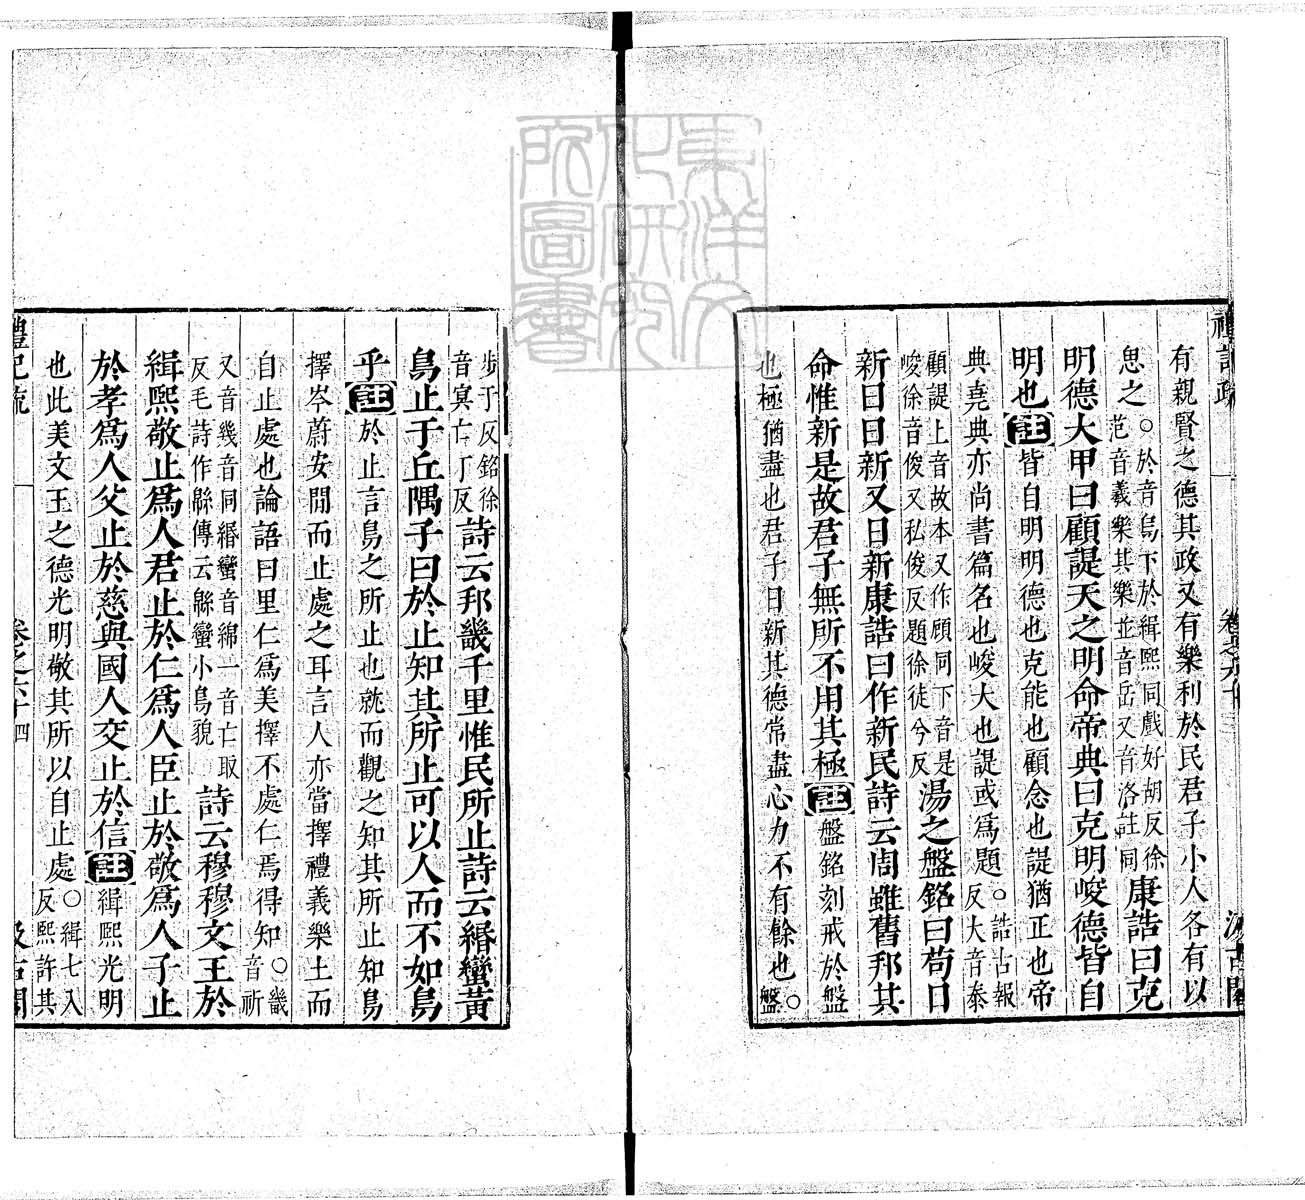 禮記疏 卷之六十 三 汲古閣
有親賢之德其政又有樂利於民君子小人各有以
思之○於音烏下於緝熙同戲好胡反徐范音羲樂其樂並音岳又音洛註同康誥曰克
明德大甲曰顧諟天之明命帝典曰克明峻德皆自
明也註皆自明明德也克能也顧念也諟猶正也帝
典堯典亦尚書篇名也峻大也諟或爲題○誥古報反大音泰
顧諟上音故本又作顾同下音是峻徐音俊又私俊反題徐徒兮反湯之盤銘曰苟日
新日日新又日新康誥曰作新民詩云周雖舊邦其
命惟新是故君子無所不用其極註盤銘刻戒於盤
也極猶盡也君子日新其德常盡心力不有餘也○盤
步于反銘徐音冥亡丁反詩云邦畿千里惟民所止詩云緡蠻黃
鳥止于丘隅子曰於止知其所止可以人而不如鳥
乎註於止言鳥之所止也就而觀之知其所止知鳥
擇岑蔚安閒而止處之耳言人亦當擇禮義樂土而
自止處也論語曰里仁爲美擇不處仁焉得知○畿音祈
又音幾音同緡蠻音綿一音亡取反毛詩作緜傳云緜蠻小鳥貌詩云穆穆文王於
緝熙敬止爲人君止於仁爲人臣止於敬爲人子止
於孝爲人父止於慈與國人交止於信註緝熙光明
也此美文王之德光明敬其所以自止處○緝七入反熙許其
禮記疏 卷之六十 四 汲古閣
東洋文化研究所圖書